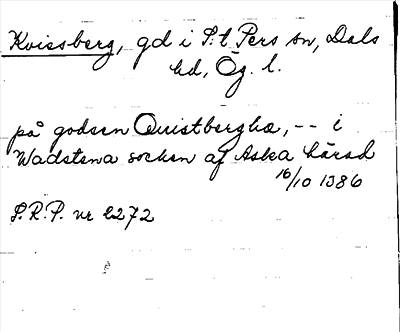 Kvissberg, gd i S:t Pers sn, Dals
hd, Ög. l.
på godsen Quistbergha, -- i
Wadstena sochen af Aska härad
16/10 1386
S.R.P. nr 2272